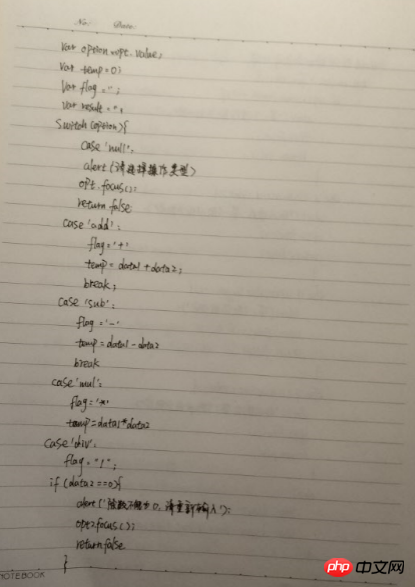 No.    Date
Var option=opt.value;
Var temp=0;
Var flag='';
Var result='';
Switch(option){
case 'null':
alert(请选择操作类型)
opt.focus();
return false
case 'add':
flag='+'
temp=data1+data2;
break;
case 'sub':
flag='-'
temp=data1-data2
break
case 'mul':
flag='*'
temp=data1*data2
case 'div'
flag="/";
if (data2==0){
alert('除数不能为0,请重新输入');
opt2focus();
return false
}
NOTEBOOK
php中文网